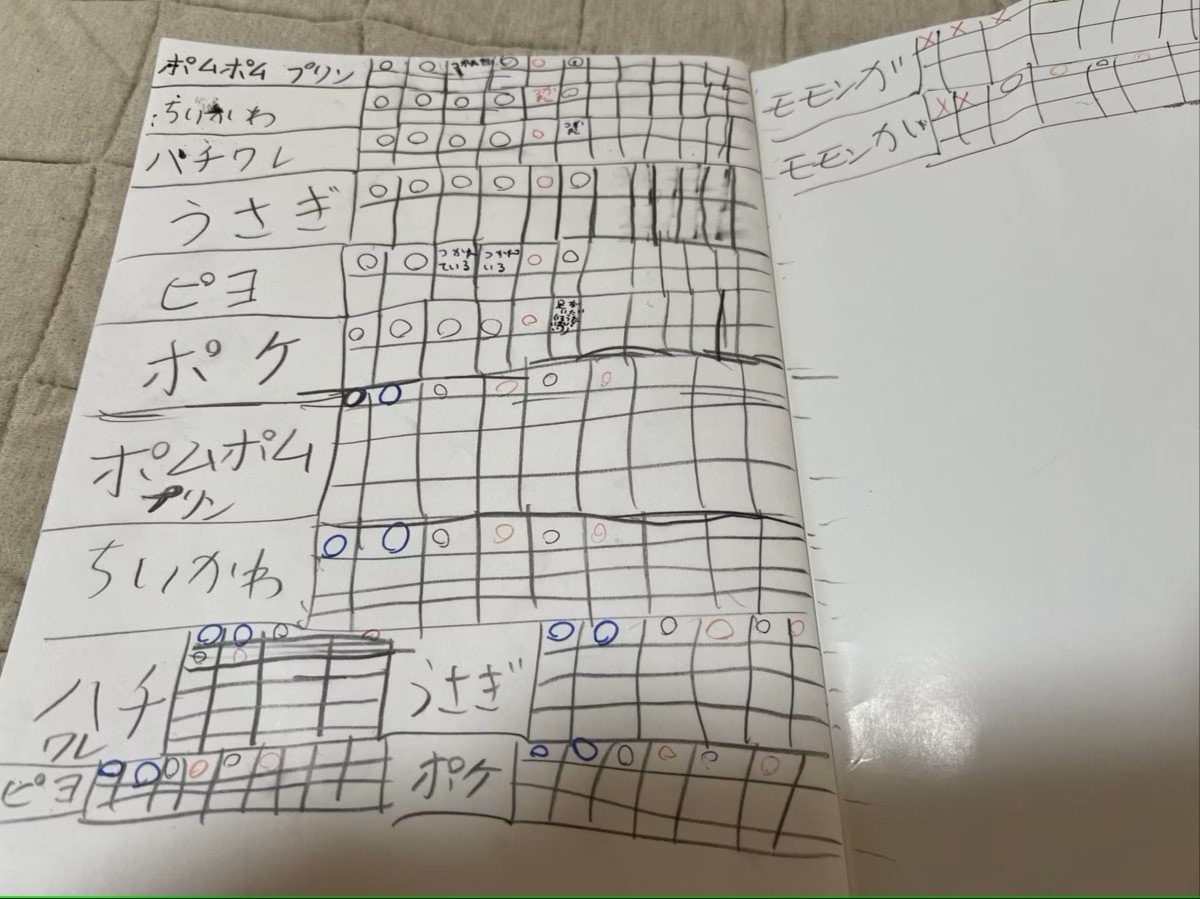 ポムポム プリン
ちいかわ
ハチワレ
うさぎ
ピヨ
つかれ
ている
つかれ
いる
ポケ
ポムポム
プリン
ちいかわ
ハチ
ワレ
うさぎ
ピヨ
ポケ
モモンガ
モモンガ